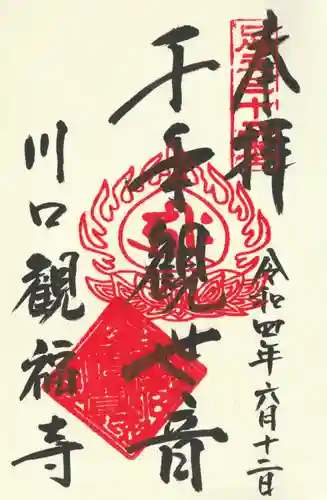 奉拝
令和四年六月十二日
千手観世音
川口観福寺